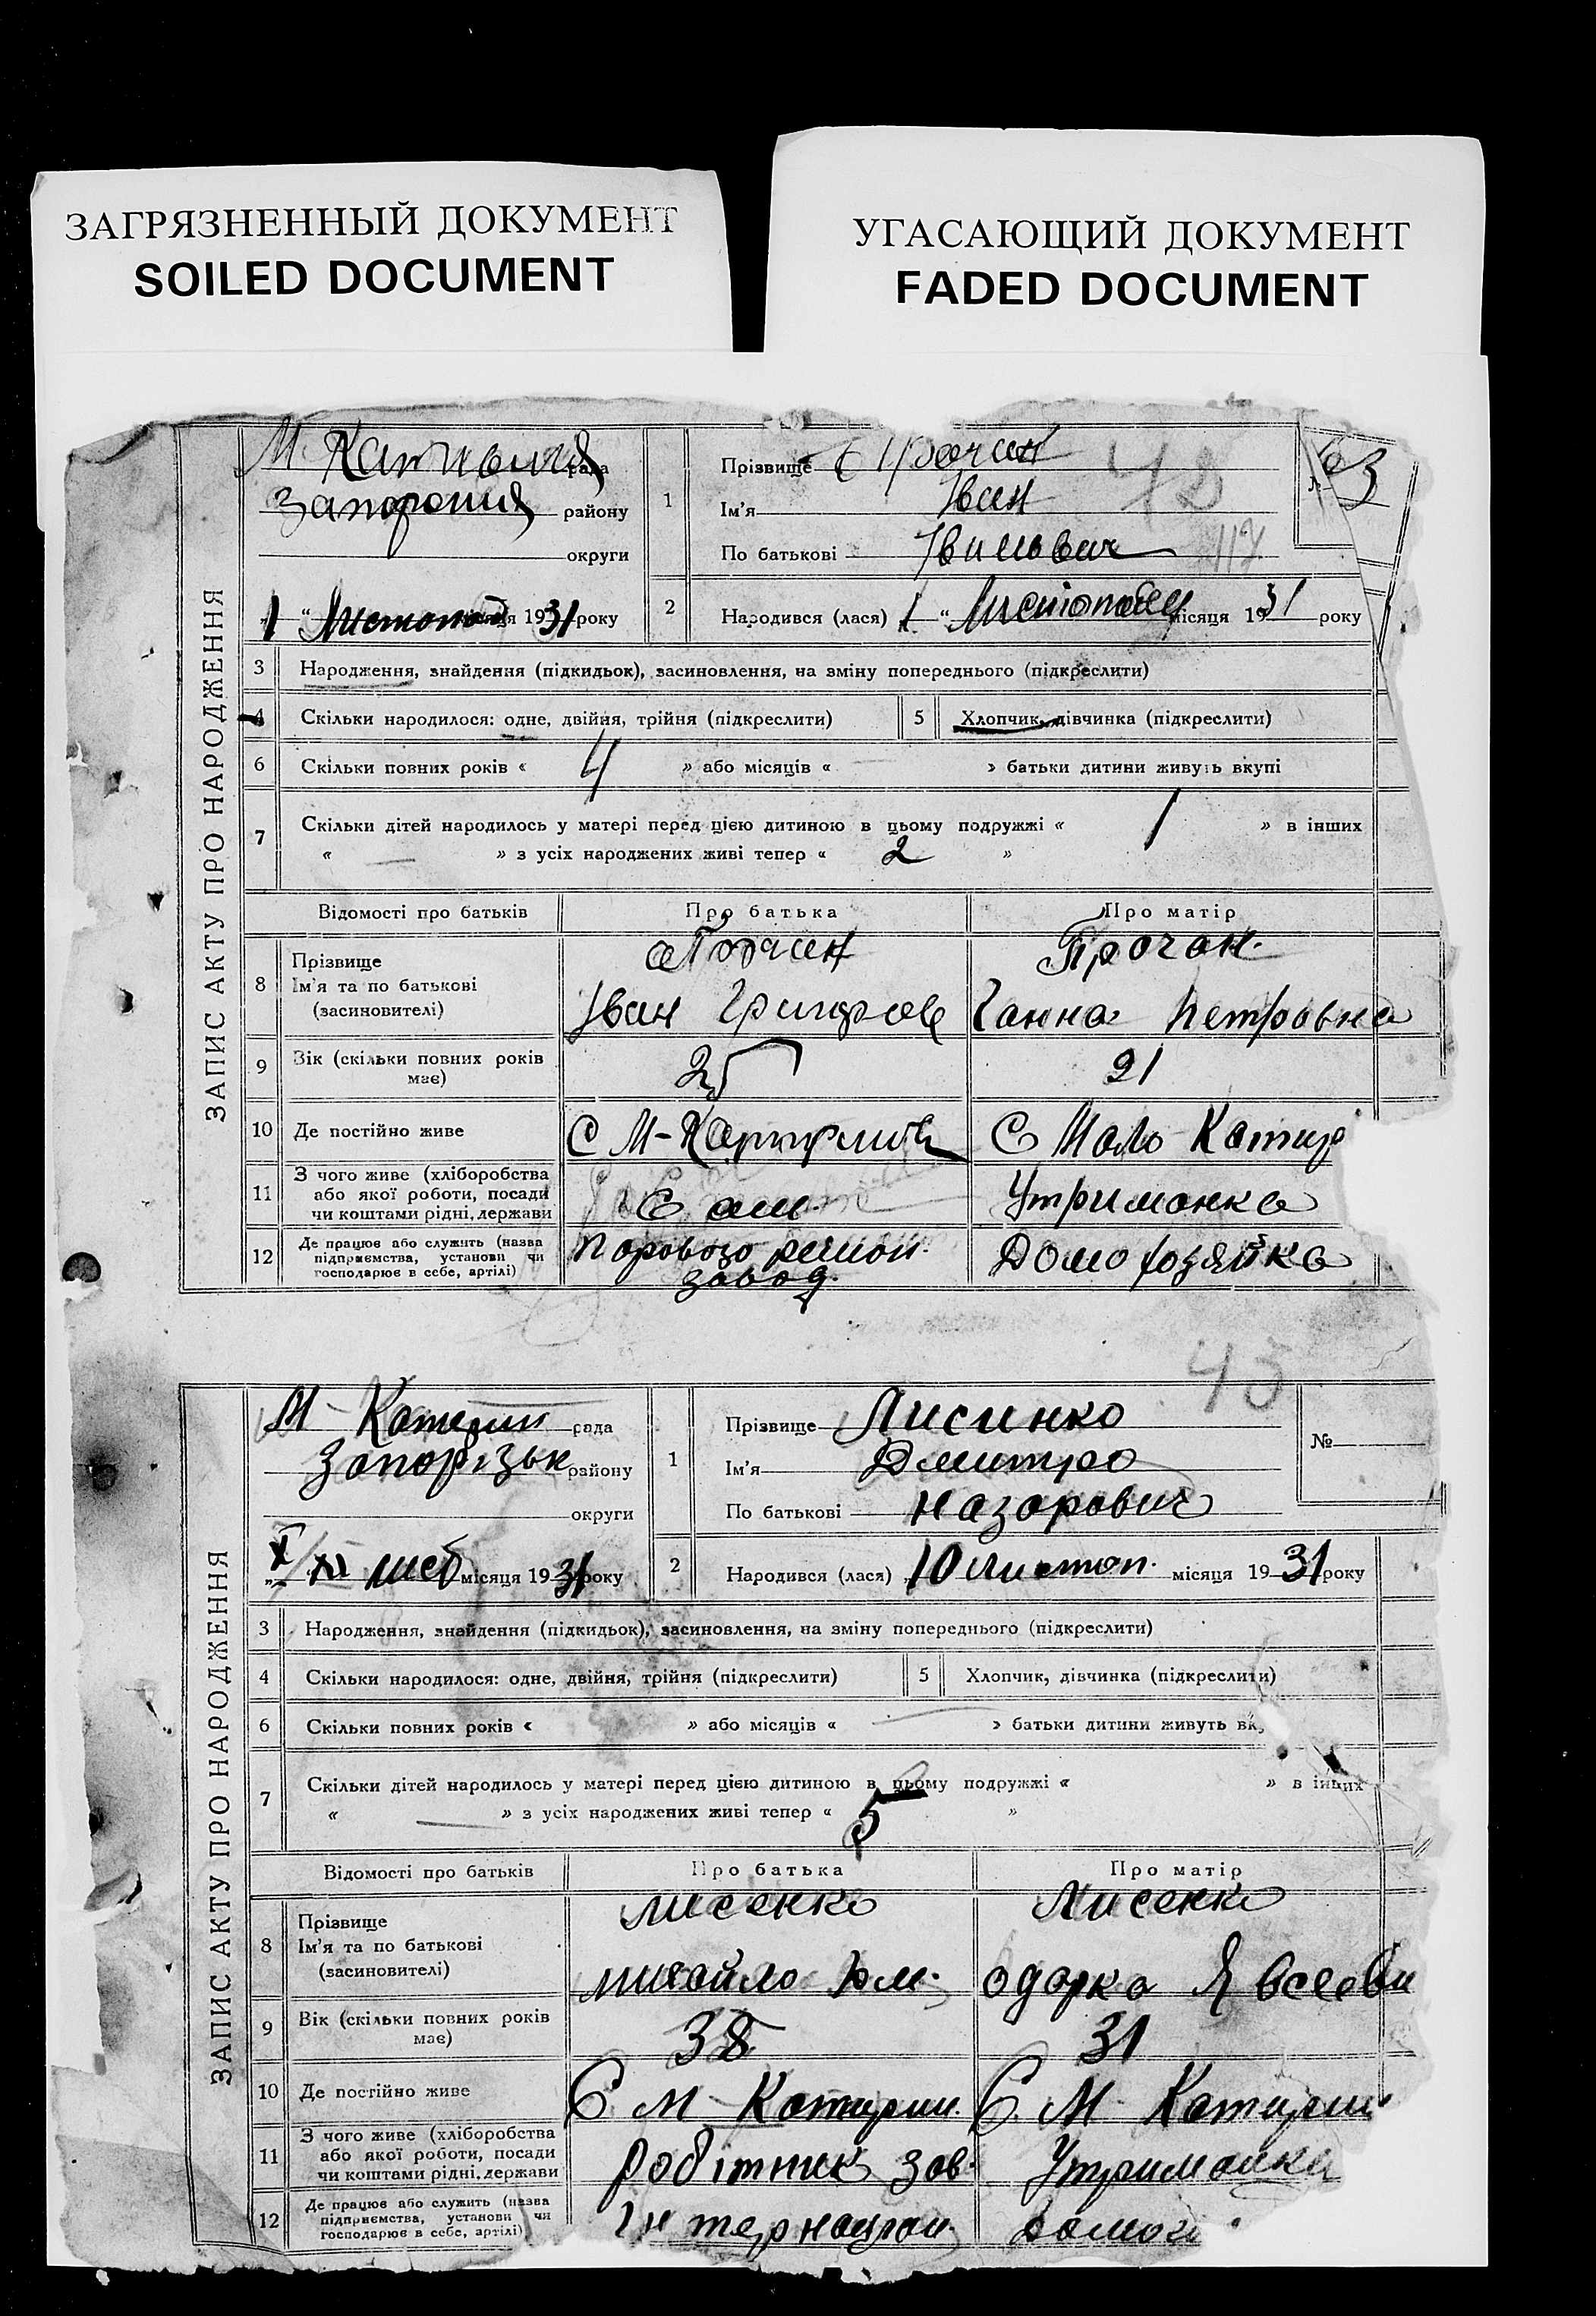 ЗАГРЯЗНЕННЫЙ ДОКУМЕНТ
SOILED DOCUMENT
УГАСАЮЩИЙ ДОКУМЕНТ
FADED DOCUMENT
ЗАПИС АКТУ ПРО НАРОДЖЕННЯ
М. рада
району
округи
1 " Листопад місяця 1931 року
1
Прізвище
Ім'я Іван
По батькові Іванович
42
117
№ 63
2
Народився (лася) 1 " Листопада місяця 1931 року
3 Народження, знайдення (підкидьок), засиновлення, на зміну попереднього (підкреслити)
4 Скільки народилося: одне, двійня, трійня (підкреслити) 5 Хлопчик, дівчинка (підкреслити)
6 Скільки повних років « 4 » або місяців « — » батьки дитини живуть вкупі
7 Скільки дітей народилось у матері перед цією дитиною в цьому подружжі « 1 » в інших
« — » з усіх народжених живі тепер « 2 »
Відомості про батьків Про батька Про матір
8 Прізвище
Ім'я та по батькові
(засиновителі)
Іван
Ганна Петровна
9 Вік (скільки повних років має) 25 21
10 Де постійно живе С М- С Мало Катир
11 З чого живе (хліборобства або якої роботи, посади чи коштами рідні, держави Сам. Утриманка
12 Де працює або служить (назва підприємства, установи чи господарює в себе, артілі) Паровозо ремон. завод. Домохозяйка
43
ЗАПИС АКТУ ПРО НАРОДЖЕННЯ
М - Катерин рада
Запорізьк району
округи
місяця 1931 року
1
Прізвище Лисинко
Ім'я Дмитро
По батькові Назарович
№
2
Народився (лася) 10 листоп. місяця 1931 року
3 Народження, знайдення (підкидьок), засиновлення, на зміну попереднього (підкреслити)
4 Скільки народилося: одне, двійня, трійня (підкреслити) 5 Хлопчик, дівчинка (підкреслити)
6 Скільки повних років « » або місяців « — » батьки дитини живуть
7 Скільки дітей народилось у матері перед цією дитиною в цьому подружжі « » в інших
« — » з усіх народжених живі тепер « 5 »
Відомості про батьків Про батька Про матір
8 Прізвище
Ім'я та по батькові
(засиновителі)
Лисенко Лисенко
михайло одарка Явсеєви
9 Вік (скільки повних років має) 38 31
10 Де постійно живе С М Катирин. С. М. Катирин
11 З чого живе (хліборобства або якої роботи, посади чи коштами рідні, держави робітник зав. Утриманка
12 Де працює або служить (назва підприємства, установи чи господарює в себе, артілі) Інтернац